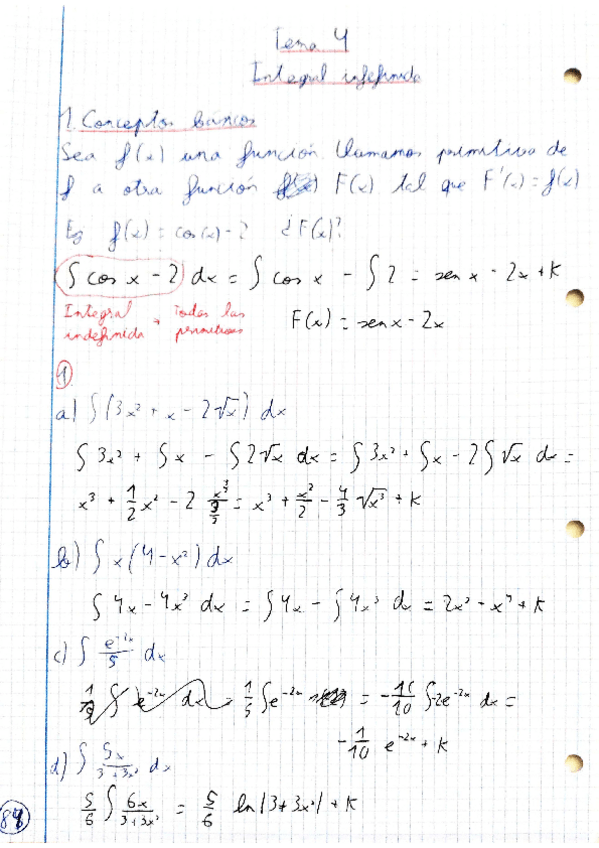 Tema 4
Integral indefinida
1. Conceptos básicos
Sea f(x) una función. Llamamos primitiva de
f a otra función F(x) tal que F'(x) = f(x)
Ej f(x) = cos(x) - 2 ¿F(x)?
∫ cos x - 2 dx = ∫ cos x - ∫ 2 = sen x - 2x + K
Integral indefinida → Todas las primitivas
F(x) = sen x - 2x
1
a) ∫ (3x² + x - 2√x) dx
∫ 3x² + ∫ x - ∫ 2√x dx = ∫ 3x² + ∫ x - 2 ∫ √x dx =
x³ + 1/2 x² - 2 x^(3/2)/(3/2) = x³ + x²/2 - 4/3 √x³ + K
b) ∫ x(4 - x²) dx
∫ 4x - 4x³ dx = ∫ 4x - ∫ 4x³ dx = 2x² - x⁴ + K
c) ∫ e^(-2x)/5 dx
= 1/5 ∫ e^(-2x) = -1/10 ∫ -2e^(-2x) dx =
-1/10 e^(-2x) + K
d) ∫ 5x/(3+3x²) dx
5/6 ∫ 6x/(3+3x²) = 5/6 ln|3+3x²| + K
84